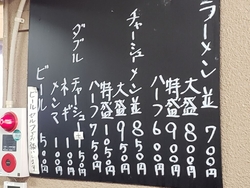 ラーメン並 700円
大盛 800円
特盛 900円
ハーフ 600円
チャーシューメン並 850円
大盛 950円
特盛 1050円
ハーフ 750円
ダブルチャーシュー
ネギ 100円
メンマ
ビール 500円
ビール セルフ